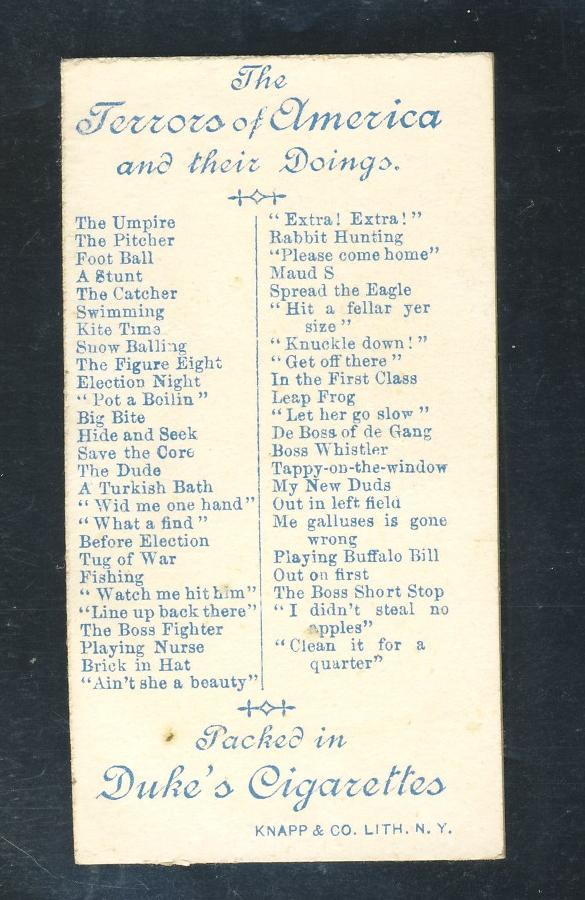 The
Terrors of America
and their Doings.
The Umpire
The Pitcher
Foot Ball
A Stunt
The Catcher
Swimming
Kite Time
Snow Balling
The Figure Eight
Election Night
“Pot a Boilin”
Big Bite
Hide and Seek
Save the Core
The Dude
A Turkish Bath
“Wid me one hand”
“What a find”
Before Election
Tug of War
Fishing
“Watch me hit him”
“Line up back there”
The Boss Fighter
Playing Nurse
Brick in Hat
“Ain't she a beauty”
“Extra! Extra!”
Rabbit Hunting
“Please come home”
Maud S
Spread the Eagle
“Hit a fellar yer
size”
“Knuckle down!”
“Get off there”
In the First Class
Leap Frog
“Let her go slow”
De Boss of de Gang
Boss Whistler
Tappy-on-the-window
My New Duds
Out in left field
Me galluses is gone
wrong
Playing Buffalo Bill
Out on first
The Boss Short Stop
“I didn't steal no
apples”
“Clean it for a
quarter”
Packed in
Duke's Cigarettes
KNAPP & CO. LITH. N. Y.